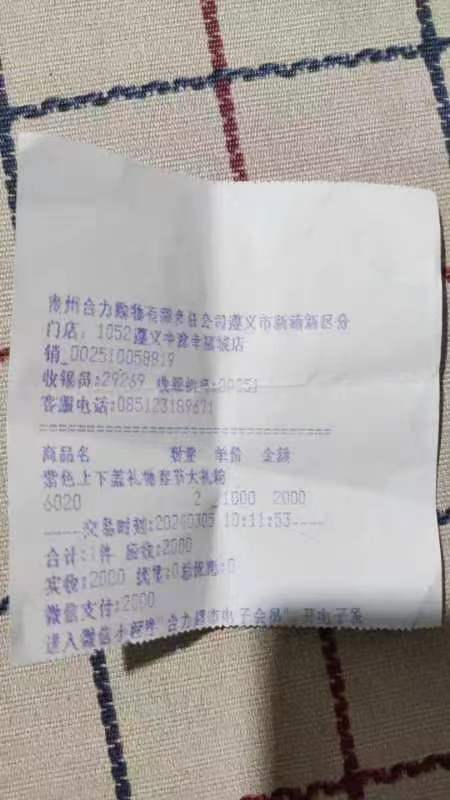 贵州合力购物有限责任公司遵义市新蒲新区分
门店: 1052遵义中建幸福城店
销_002510058819
收银员:29269
客服电话:085123189671
商品名 数量 单价 金额
紫色上下盖礼物春节大礼箱
6020 2 1000 2000
-----交易时刻:20240305 10:11:53-----
合计:1件 应收:2000
实收:2000 找零:0总优惠:0
微信支付:2000
进入微信小程序"合力超市电子会员", 开电子票